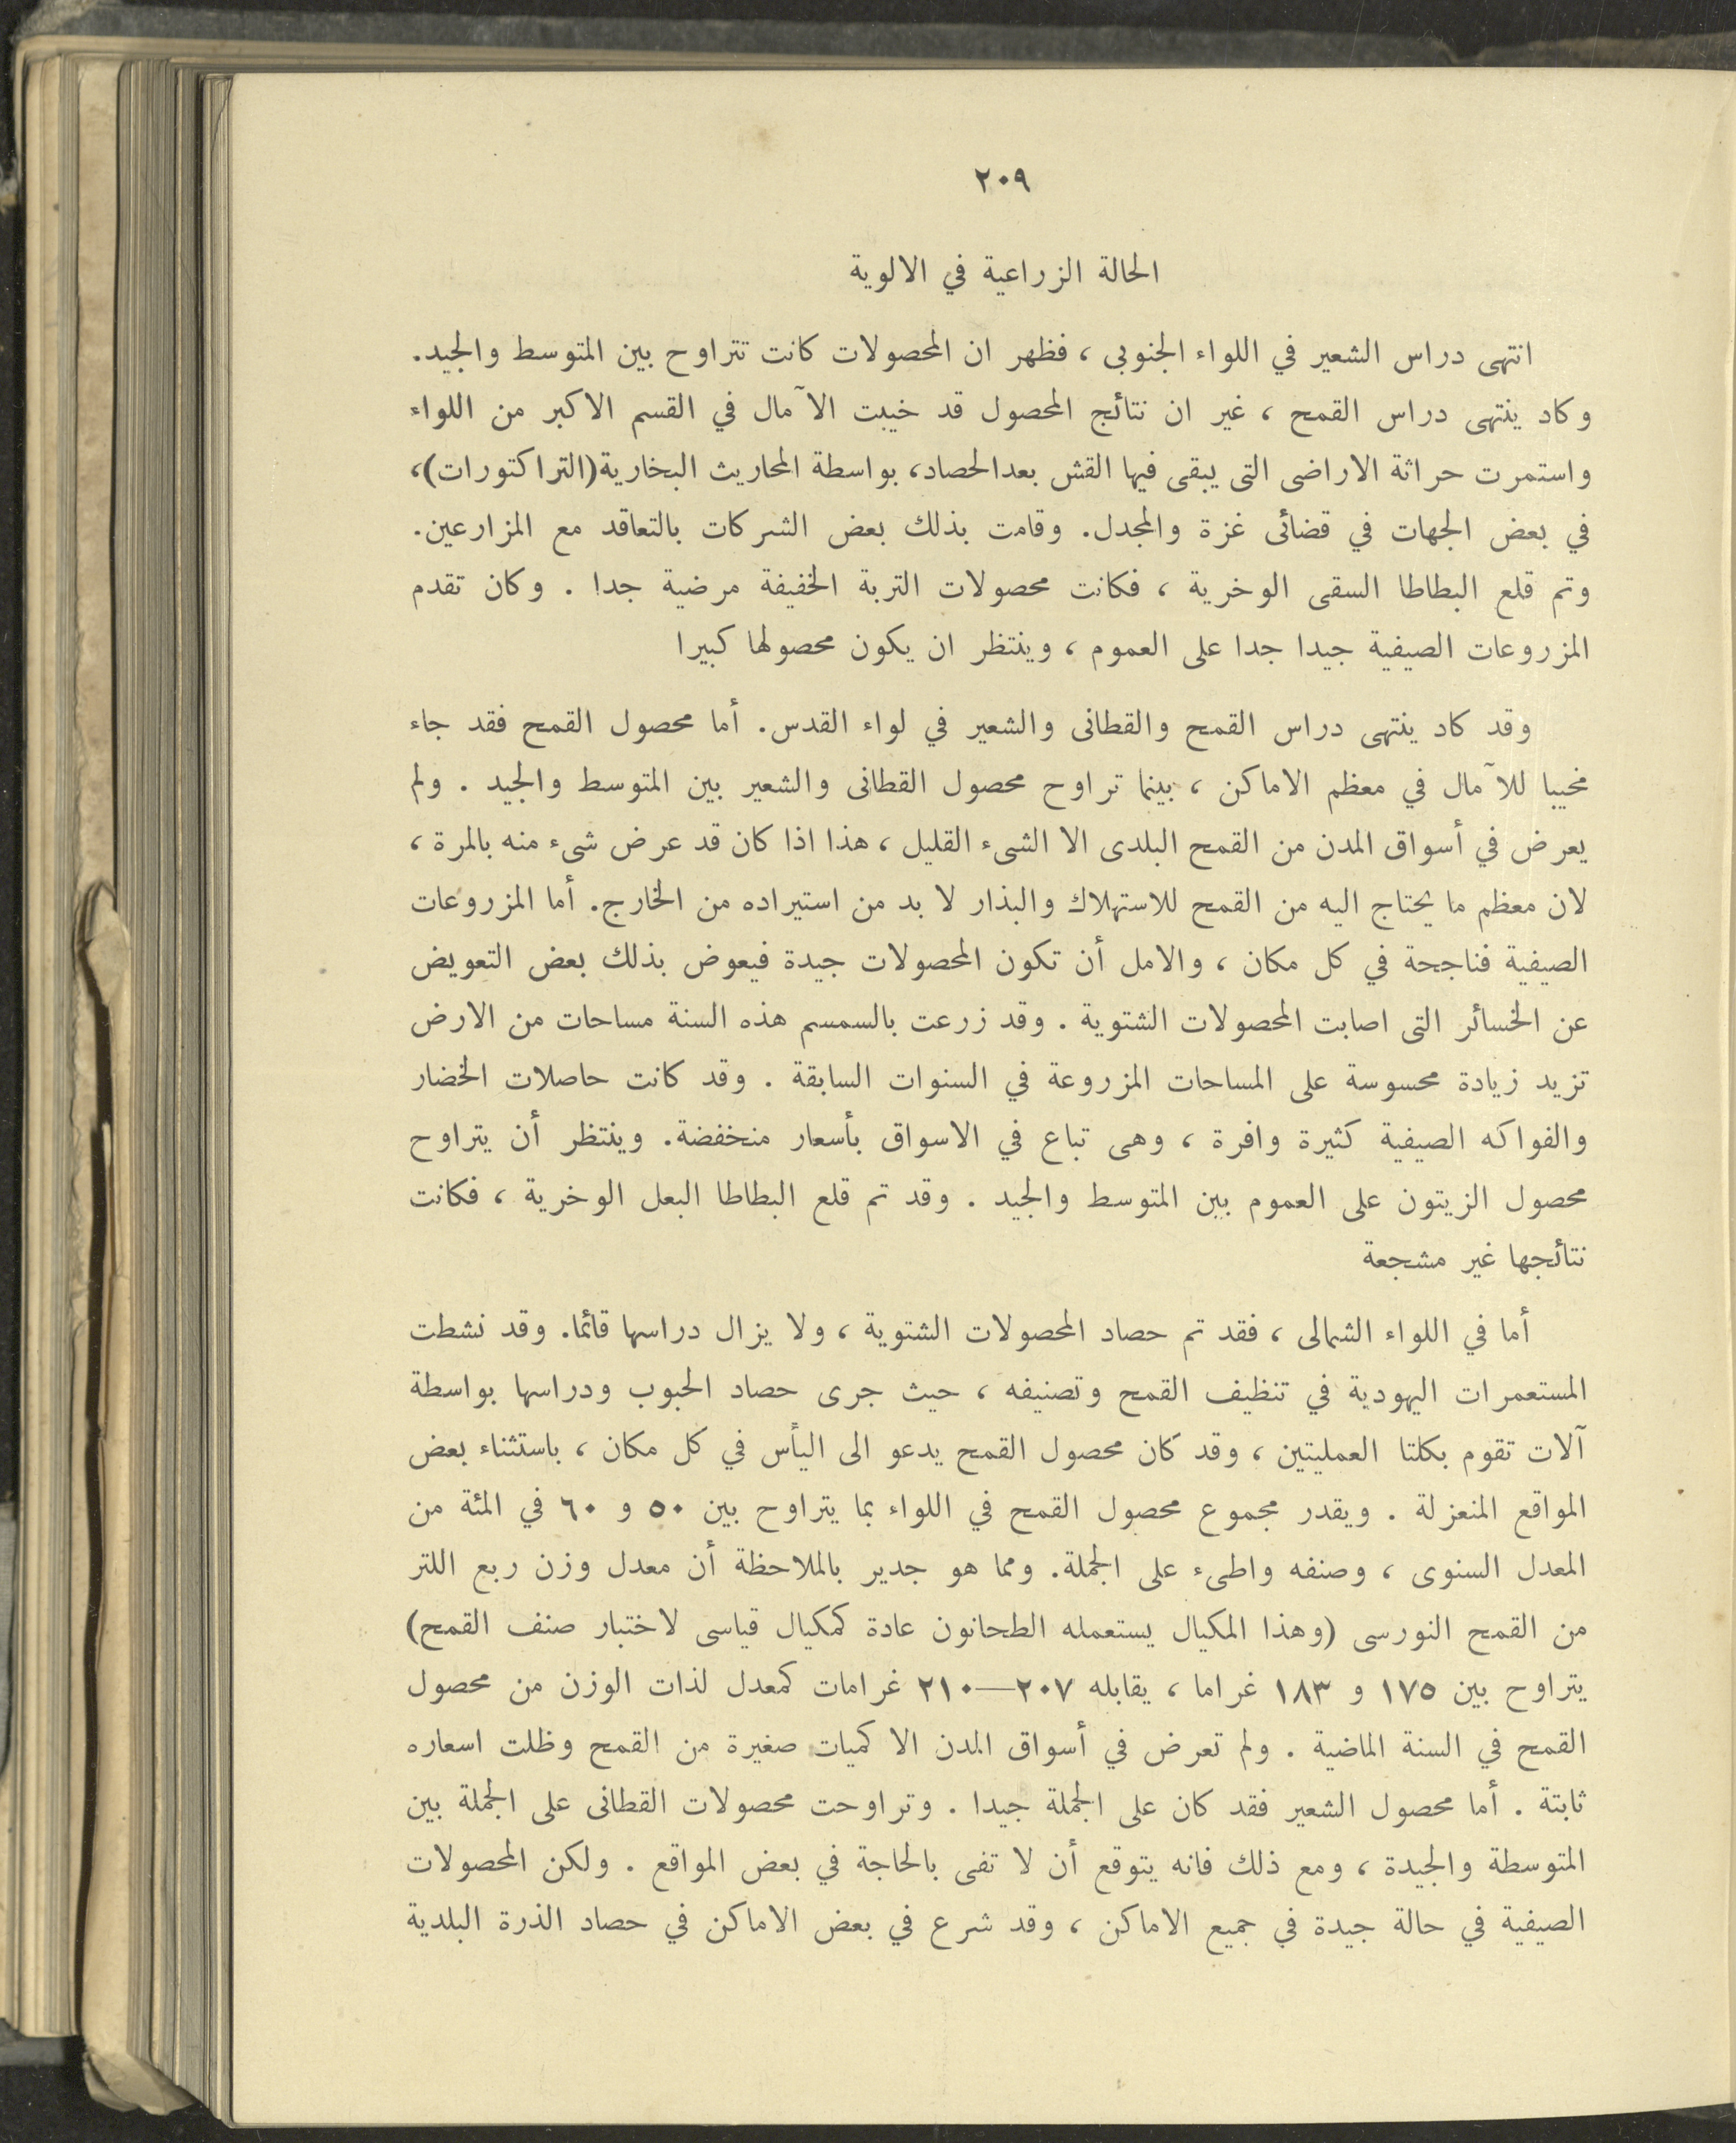 ٢٠٩
الحالة الزراعية في الالوية
انتهى دراس الشعير في اللواء الجنوبى ، فظهر ان المحصولات كانت تتراوح بين المتوسط والجيد.
وكاد ينتهى دراس القمح ، غير ان نتائج المحصول قد خيبت الآمال في القسم الاكبر من اللواء
واستمرت حراثة الاراضى التى يبقى فيها القش بعدالحصاد، بواسطة المحاريث البخارية(التراكتورات)،
في بعض الجهات في قضائى غزة والمجدل. وقامت بذلك بعض الشركات بالتعاقد مع المزارعين.
وتم قلع البطاطا السقى الوخرية ، فكانت محصولات التربة الخفيفة مرضية جدا . وكان تقدم
المزروعات الصيفية جيدا جدا على العموم ، وينتظر ان يكون محصولها كبيرا
وقد كاد ينتهى دراس القمح والقطانى والشعير في لواء القدس. أما محصول القمح فقد جاء
مخيبا للآمال في معظم الاماكن ، بينما تراوح محصول القطانى والشعير بين المتوسط والجيد . ولم
يعرض في أسواق المدن من القمح البلدى الا الشىء القليل ، هذا اذا كان قد عرض شىء منه بالمرة ،
لان معظم ما يحتاج اليه من القمح للاستهلاك والبذار لا بد من استيراده من الخارج. أما المزروعات
الصيفية فناجحة في كل مكان ، والامل أن تكون المحصولات جيدة فيعوض بذلك بعض التعويض
عن الخسائر التى اصابت المحصولات الشتوية . وقد زرعت بالسمسم هذه السنة مساحات من الارض
تزيد زيادة محسوسة على المساحات المزروعة في السنوات السابقة . وقد كانت حاصلات الخضار
والفواكه الصيفية كثيرة وافرة ، وهى تباع في الاسواق بأسعار منخفضة. وينتظر أن يتراوح
محصول الزيتون على العموم بين المتوسط والجيد . وقد تم قلع البطاطا البعل الوخرية ، فكانت
نتائجها غير مشجعة
أما في اللواء الشمالى ، فقد تم حصاد المحصولات الشتوية ، ولا يزال دراسها قائما. وقد نشطت
المستعمرات اليهودية في تنظيف القمح وتصنيفه ، حيث جرى حصاد الحبوب ودراسها بواسطة
آلات تقوم بكلتا العمليتين ، وقد كان محصول القمح يدعو الى اليأس في كل مكان ، باستثناء بعض
المواقع المنعزلة . ويقدر مجموع محصول القمح في اللواء بما يتراوح بين ٥٠ و ٦٠ في المئة من
المعدل السنوى ، وصنفه واطىء على الجملة. ومما هو جدير بالملاحظة أن معدل وزن ربع اللتر
من القمح النورسى (وهذا المكيال يستعمله الطحانون عادة كمكيال قياسى لاختبار صنف القمح)
يتراوح بين ١٧٥ و ١٨٣ غراما ، يقابله ٢٠٧—٢١٠ غرامات كمعدل لذات الوزن من محصول
القمح في السنة الماضية . ولم تعرض في أسواق المدن الا كميات صغيرة من القمح وظلت اسعاره
ثابتة . أما محصول الشعير فقد كان على الجملة جيدا . وتراوحت محصولات القطانى على الجملة بين
المتوسطة والجيدة ، ومع ذلك فانه يتوقع أن لا تفى بالحاجة في بعض المواقع . ولكن المحصولات
الصيفية في حالة جيدة في جميع الاماكن ، وقد شرع في بعض الاماكن في حصاد الذرة البلدية